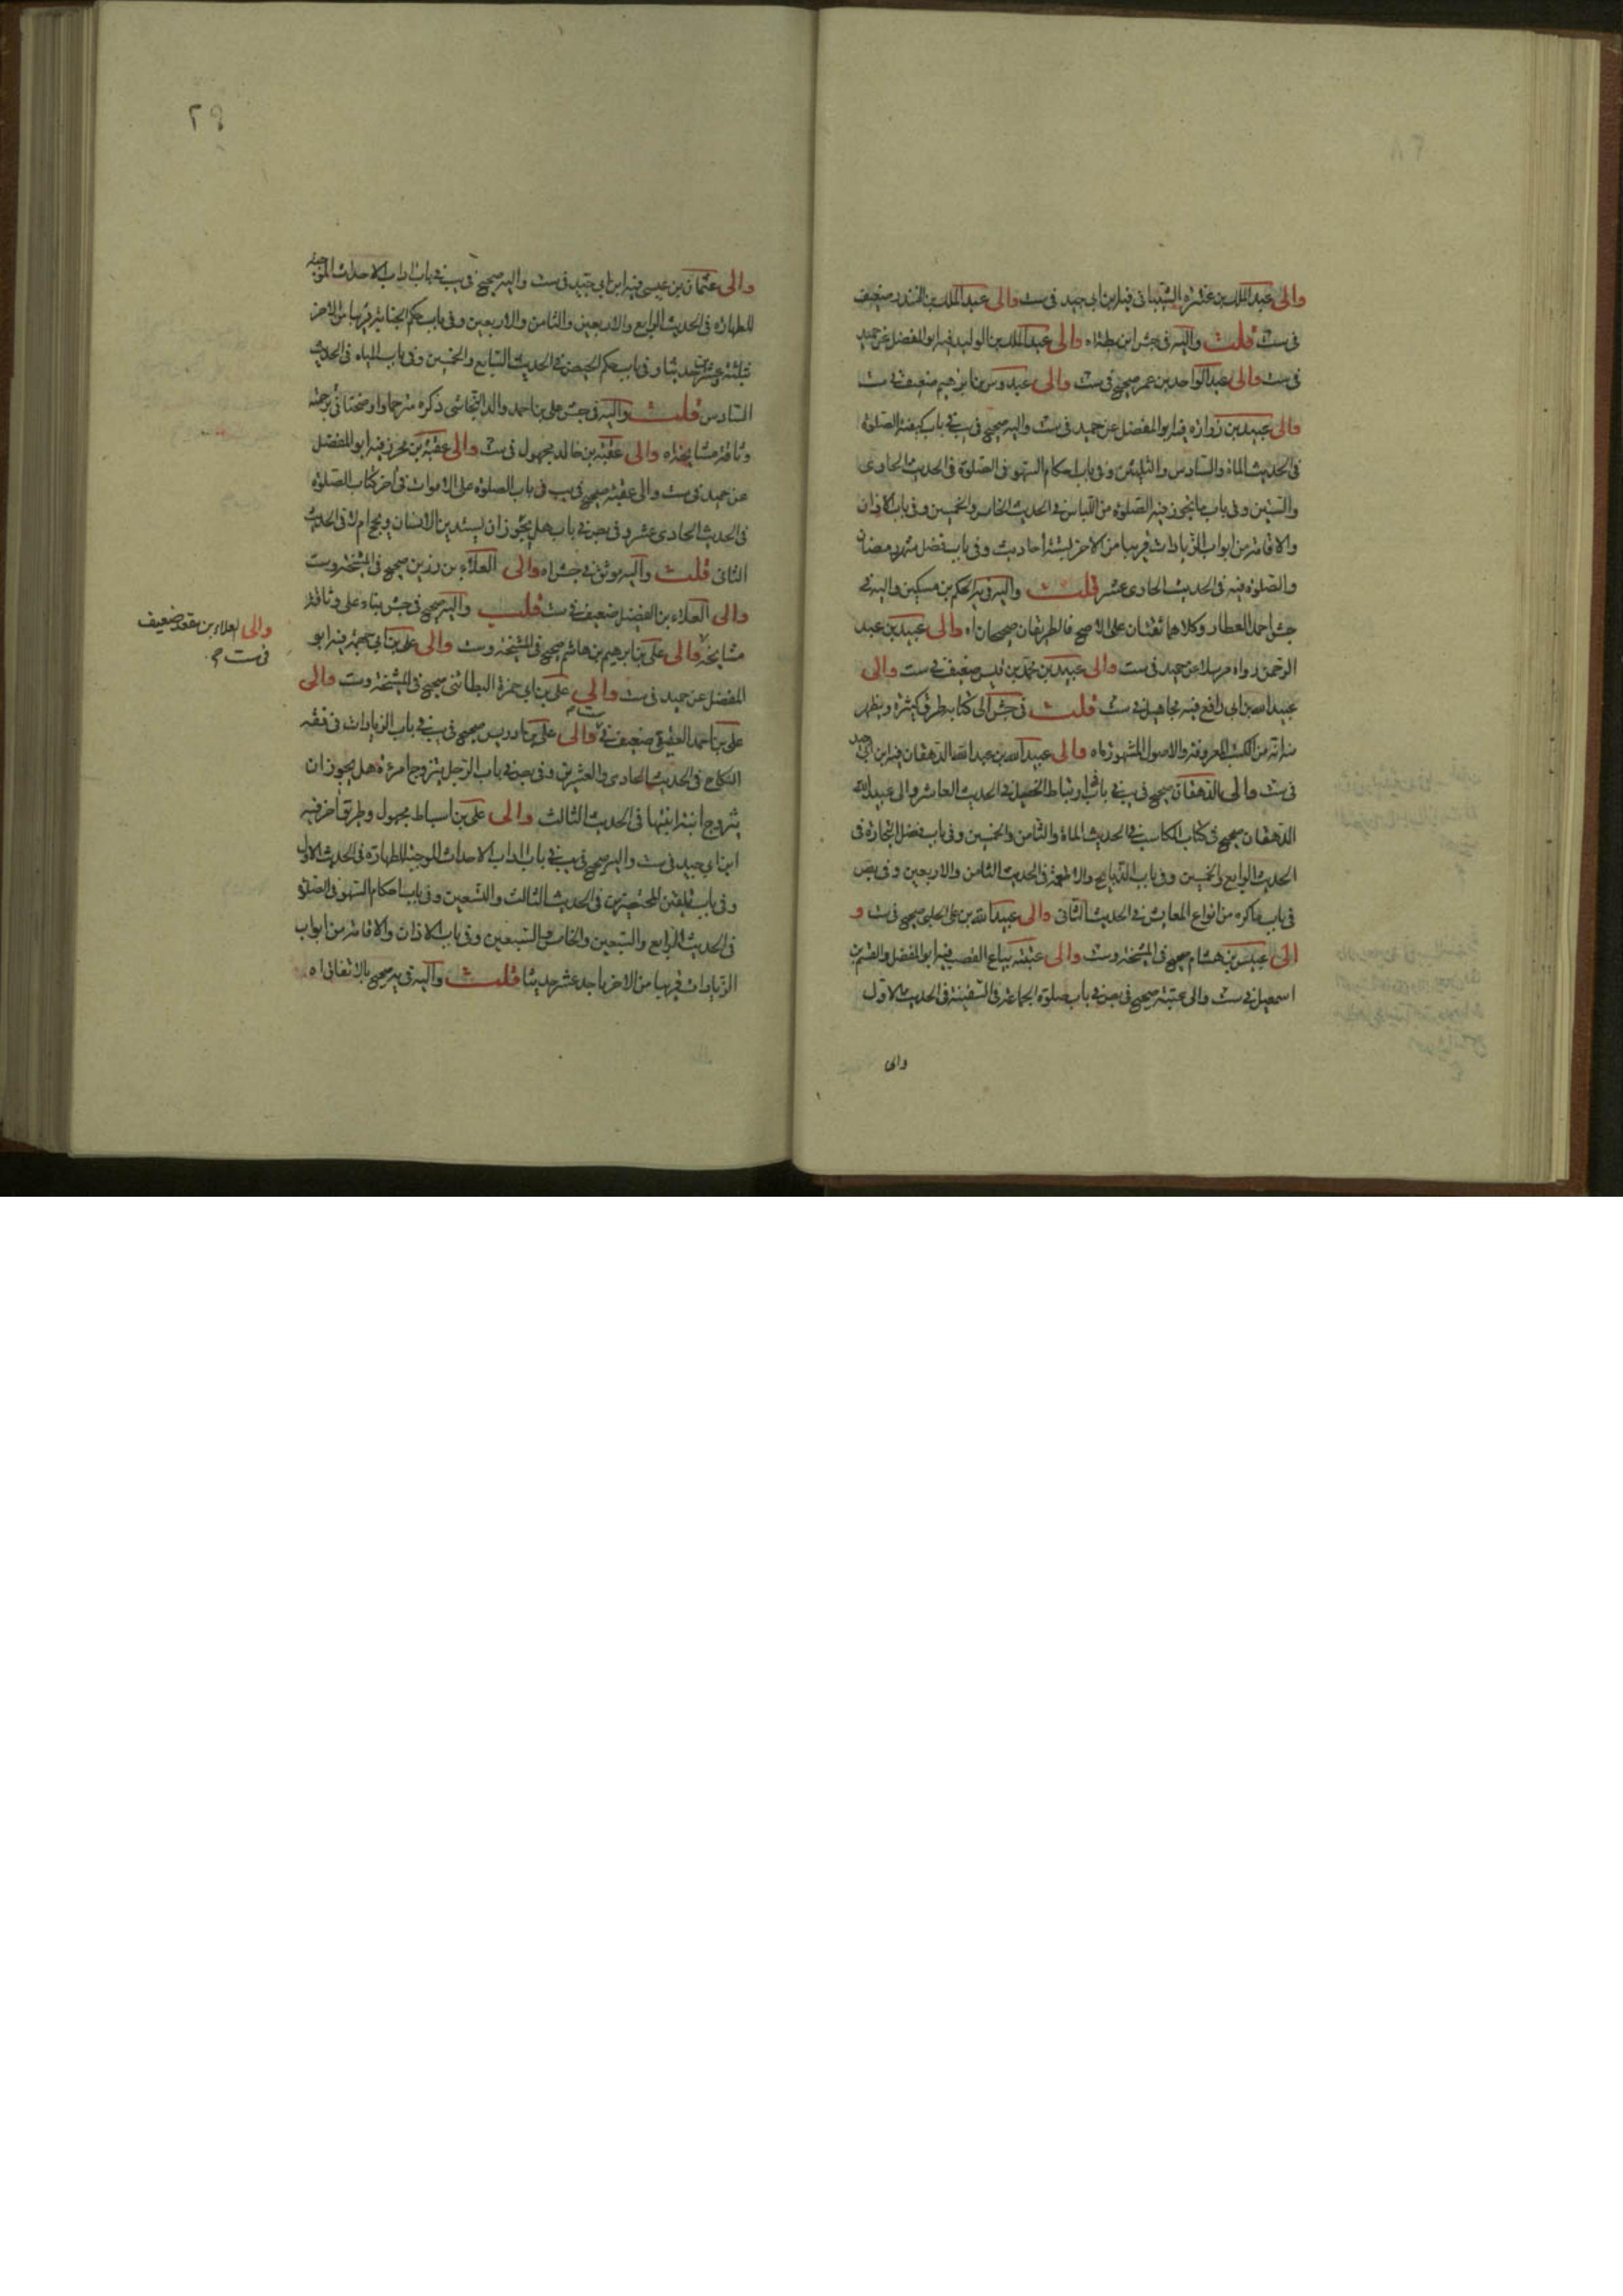 والى عبد الملك بن عنتره الشيبانى فيه ابن ابى جيد فى ست والى عبد الملك بن المنذر ضعيف
فى ست قلت واليه فى جش ابن بطه اه والى عبد الملك بن الوليد فيه ابو المفضل عن حميد
فى ست والى عبد الواحد بن عمر صحيح فى ست والى عبدوس بن ابرهيم ضعيف فى ست
والى عبيد بن زراره فيه ابو المفضل عن حميد فى ست واليه صحيح فى يب فى باب كيفية الصلوة
فى الحديث الماة والسادس والثلثين وفى باب احكام السهو فى الصلوة فى الحديث الحادى
والستين وفى باب ما يجوز فيه الصلوة من اللباس فى الحديث الخامس والخمسين وفى باب الاذان
والاقامة من ابواب الزيادات قريبا من الاخر بستة احاديث وفى باب فضل شهر رمضان
والصلوة فيه فى الحديث الحادى عشر قلت واليه فى يه الحكم بن مسكين واليه فى
جش احمد العطار وكلاهما ثقتان على الاصح فالطريقان صحيحان اه والى عبيد بن عبد
الرحمن رواه مرسلا عن حميد فى ست والى عبيد بن محمد بن قيس ضعيف فى ست والى
عبيد الله بن ابى رافع فيه مجاهيل فى ست قلت فى جش الى كتابه طرق كثيرة ويظهر
منه انه من الكتب المعروفة والاصول المشهورة اه والى عبيد الله بن عبد الله الدهقان فيه ابن ابى جيد
فى ست والى الدهقان صحيح فى يب فى باب ارتباط الخيل فى الحديث العاشر والى عبيد الله
الدهقان صحيح فى كتاب المكاسب فى الحديث الماة والثامن والخمسين وفى باب فضل التجارة فى
الحديث الرابع والخمسين وفى باب الذبايح والاطعمة فى الحديث الثامن والاربعين وفى بص
فى باب ما كره من انواع المعايش فى الحديث الثانى والى عبيد الله بن على الحلبى صحيح فى ست و
الى عبيس بن هشام صحيح فى المشيخة وست والى عتيبة بياع القصب فيه ابو المفضل والقسم بن
اسمعيل فى ست والى عتيبة صحيح فى بص فى باب صلوة الجماعة فى السفينة فى الحديث الاول
والى
٢٩
والى عثمان بن عيسى فيه ابن ابى جيد فى ست واليه صحيح فى يب فى باب اداب الاحداث الموجبة
للطهارة فى الحديث الرابع والاربعين والثامن والاربعين وفى باب حكم الجنابة قريبا من الاخر
بثلثة عشر حديثا وفى باب حكم الحيض فى الحديث السابع والخمسين وفى باب المياه فى الحديث
السادس قلت واليه فى جش على بن احمد والد النجاشى ذكره مترحما واوضحنا فى ترجمته
وثاقة مشايخه اه والى عقبة بن خالد مجهول فى ست والى عقبة بن محرز فيه ابو المفضل
عن حميد فى ست والى عقبة صحيح فى يب فى باب الصلوة على الاموات فى اخر كتاب الصلوة
فى الحديث الحادى عشر وفى بص فى باب هل يجوز ان يستدين الانسان ويحج ام لا فى الحديث
الثانى قلت واليه موثق فى جش اه والى العلاء بن رزين صحيح فى المشيخة وست
والى العلاء بن الفضيل ضعيف فى ست قلت واليه صحيح فى جش بناء على وثاقة
مشايخه والى على بن ابرهيم بن هاشم صحيح فى المشيخة وست والى على بن ابى جهمة فيه ابو
المفضل عن حميد فى ست والى على بن ابى حمزة البطائنى صحيح فى المشيخة وست والى
على بن احمد العقيقى ضعيف فى ست والى على بن ادريس صحيح فى يب فى باب الزيادات فى فقه
النكاح فى الحديث الحادى والعشرين وفى بص فى باب الرجل يتزوج امرءة هل يجوز ان
يتزوج ابنه ابنتها فى الحديث الثالث والى على بن اسباط مجهول وطريق اخر فيه
ابن ابى جيد فى ست واليه صحيح فى يب فى باب اداب الاحداث الموجبة للطهارة فى الحديث الاول
وفى باب تلقين المحتضرين فى الحديث الثالث والتسعين وفى باب احكام السهو فى الصلوة
فى الحديث الرابع والسبعين والخامس والسبعين وفى باب الاذان والاقامة من ابواب
الزيادات قريبا من الاخر باحد عشر حديثا قلت واليه فى يه صحيح بالاتفاق اه
والى العلاء بن مقعد ضعيف
فى ست م